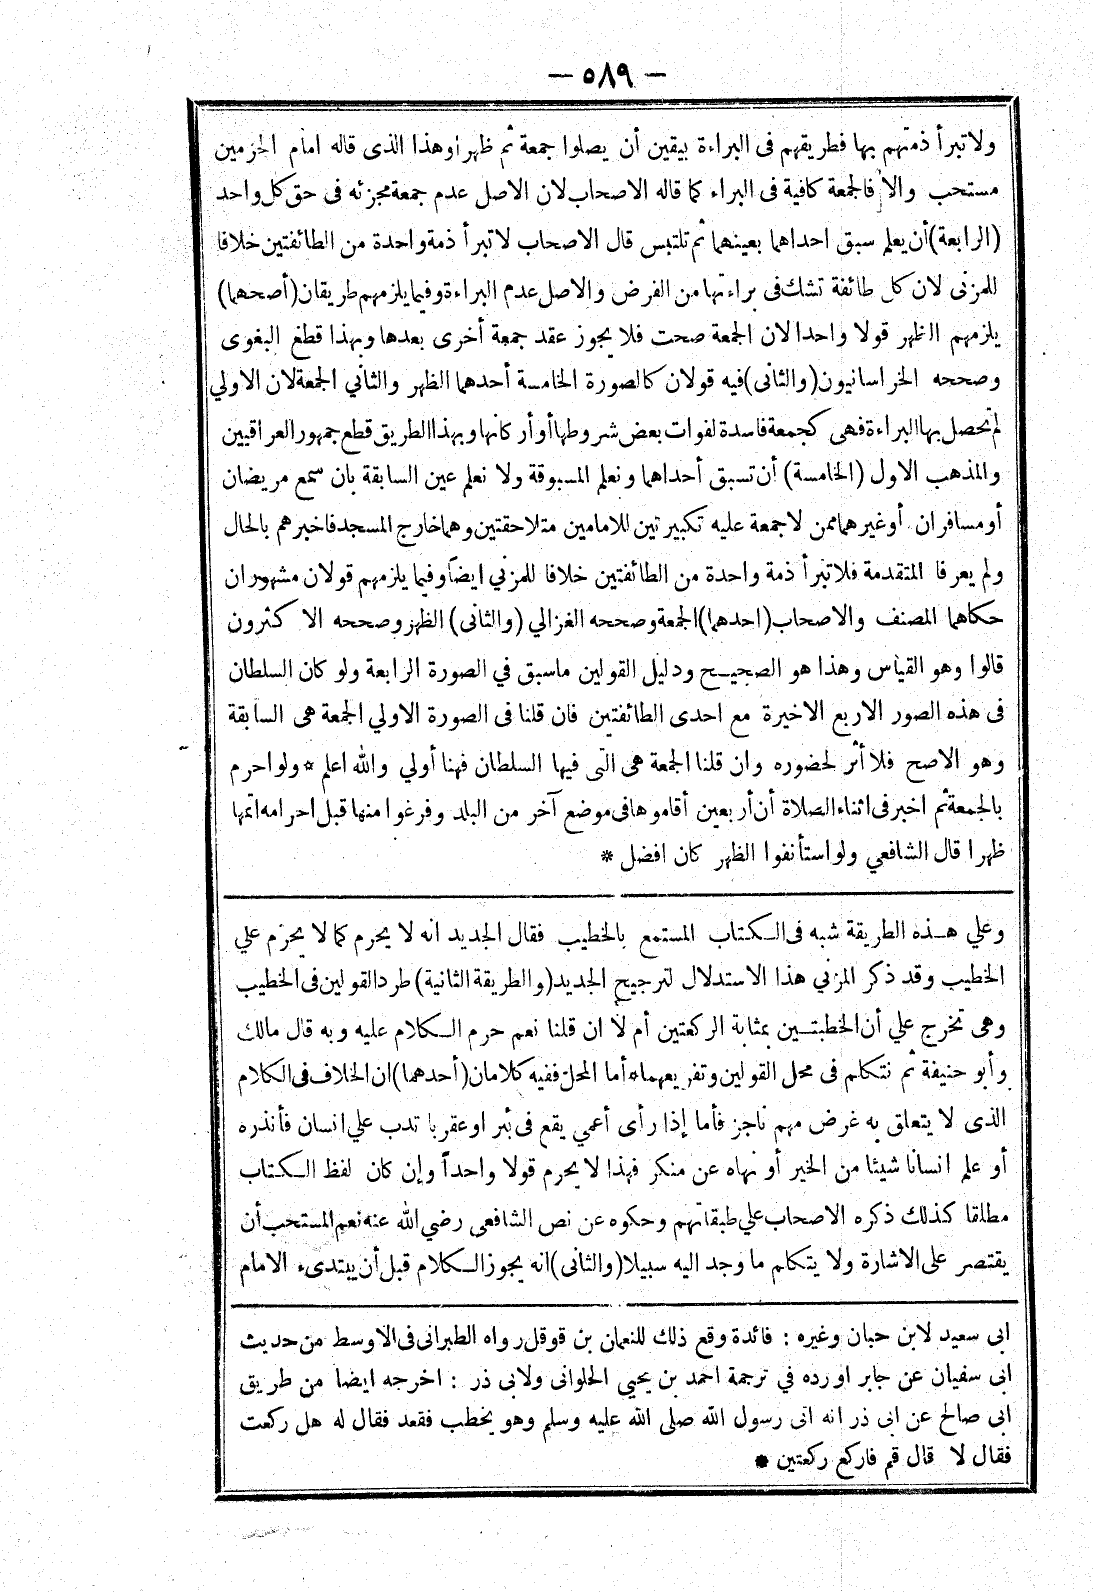 — ٥٨٩ —
ولا تبرأ ذمتهم بها فطريقهم فى البراءة بيقين أن يصلوا جمعة ثم ظهرا وهذا الذى قاله امام الحرمين
مستحب والا فالجمعة كافية فى البراء كما قاله الاصحاب لان الاصل عدم جمعة مجزئه فى حق كل واحد
(الرابعة) أن يعلم سبق احداهما بعينهما ثم تلتبس قال الاصحاب لا تبرأ ذمة واحدة من الطائفتين خلافا
للمزنى لان كل طائفة تشك فى براءتها من الفرض والاصل عدم البراءة وفيما يلزمهم طريقان (أصحهما)
يلزمهم الظهر قولا واحدا لان الجمعة صحت فلا يجوز عقد جمعة أخرى بعدها وبهذا قطع البغوى
وصححه الخراسانيون (والثانى) فيه قولان كالصورة الخامسة أحدهما الظهر والثاني الجمعة لان الاولي
لم تحصل بها البراءة فهى كجمعة فاسدة لفوات بعض شروطها أو أركانها وبهذا الطريق قطع جمهور العراقيين
والمذهب الاول (الخامسة) أن تسبق أحداهما ونعلم المسبوقة ولا نعلم عين السابقة بان سمع مريضان
أو مسافران أو غيرهما ممن لا جمعة عليه تكبيرتين للامامين متلاحقتين وهما خارج المسجد فاخبرهم بالحال
ولم يعرفا المتقدمة فلا تبرأ ذمة واحدة من الطائفتين خلافا للمزني ايضاً وفيما يلزمهم قولان مشهوران
حكاهما المصنف والاصحاب (احدهما) الجمعة وصححه الغزالي (والثانى) الظهر وصححه الا كثرون
قالوا وهو القياس وهذا هو الصحيح ودليل القولين ماسبق في الصورة الرابعة ولو كان السلطان
فى هذه الصور الاربع الاخيرة مع احدى الطائفتين فان قلنا فى الصورة الاولي الجمعة هى السابقة
وهو الاصح فلا أثر لحضوره وان قلنا الجمعة هى التى فيها السلطان فهنا أولي والله اعلم * ولو احرم
بالجمعة ثم اخبر فى اثناء الصلاة أن أربعين أقاموها فى موضع آخر من البلد وفرغوا منها قبل احرامه اتمها
ظهرا قال الشافعي ولو استأنفوا الظهر كان افضل *
وعلي هـذه الطريقة شبه فى الـكتاب المستمع بالخطيب فقال الجديد انه لا يحرم كما لا يحرم علي
الخطيب وقد ذكر المزني هذا الاستدلال لترجيح الجديد (والطريقة الثانية) طرد القولين فى الخطيب
وهى تخرج علي أن الخطبتـين بمثابة الركعتين أم لا ان قلنا نعم حرم الـكلام عليه وبه قال مالك
وأبو حنيفة ثم نتكلم فى محل القولين وتفريعهما * أما المحل ففيه كلامان (أحدهما) ان الخلاف فى الكلام
الذى لا يتعلق به غرض مهم ناجز فأما إذا رأى أعمي يقع فى بئر او عقربا تدب علي انسان فأنذره
أو علم انسانا شيئا من الخير أو نهاه عن منكر فهذا لا يحرم قولا واحداً وإن كان لفظ الـكتاب
مطلقا كذلك ذكره الاصحاب علي طبقاتهم وحكوه عن نص الشافعى رضي الله عنه نعم المستحب أن
يقتصر على الاشارة ولا يتكلم ما وجد اليه سبيلا (والثانى) انه يجوز الـكلام قبل أن يبتدىء الامام
ابى سعيد لابن حبان وغيره : فائدة وقع ذلك للنعمان بن قوقل رواه الطبرانى فى الاوسط من حديث
ابى سفيان عن جابر اورده في ترجمة احمد بن يحيى الحلوانى ولابى ذر : اخرجه ايضا من طريق
ابى صالح عن ابى ذر انه اتى رسول الله صلى الله عليه وسلم وهو يخطب فقعد فقال له هل ركعت
فقال لا قال قم فاركع ركعتين *